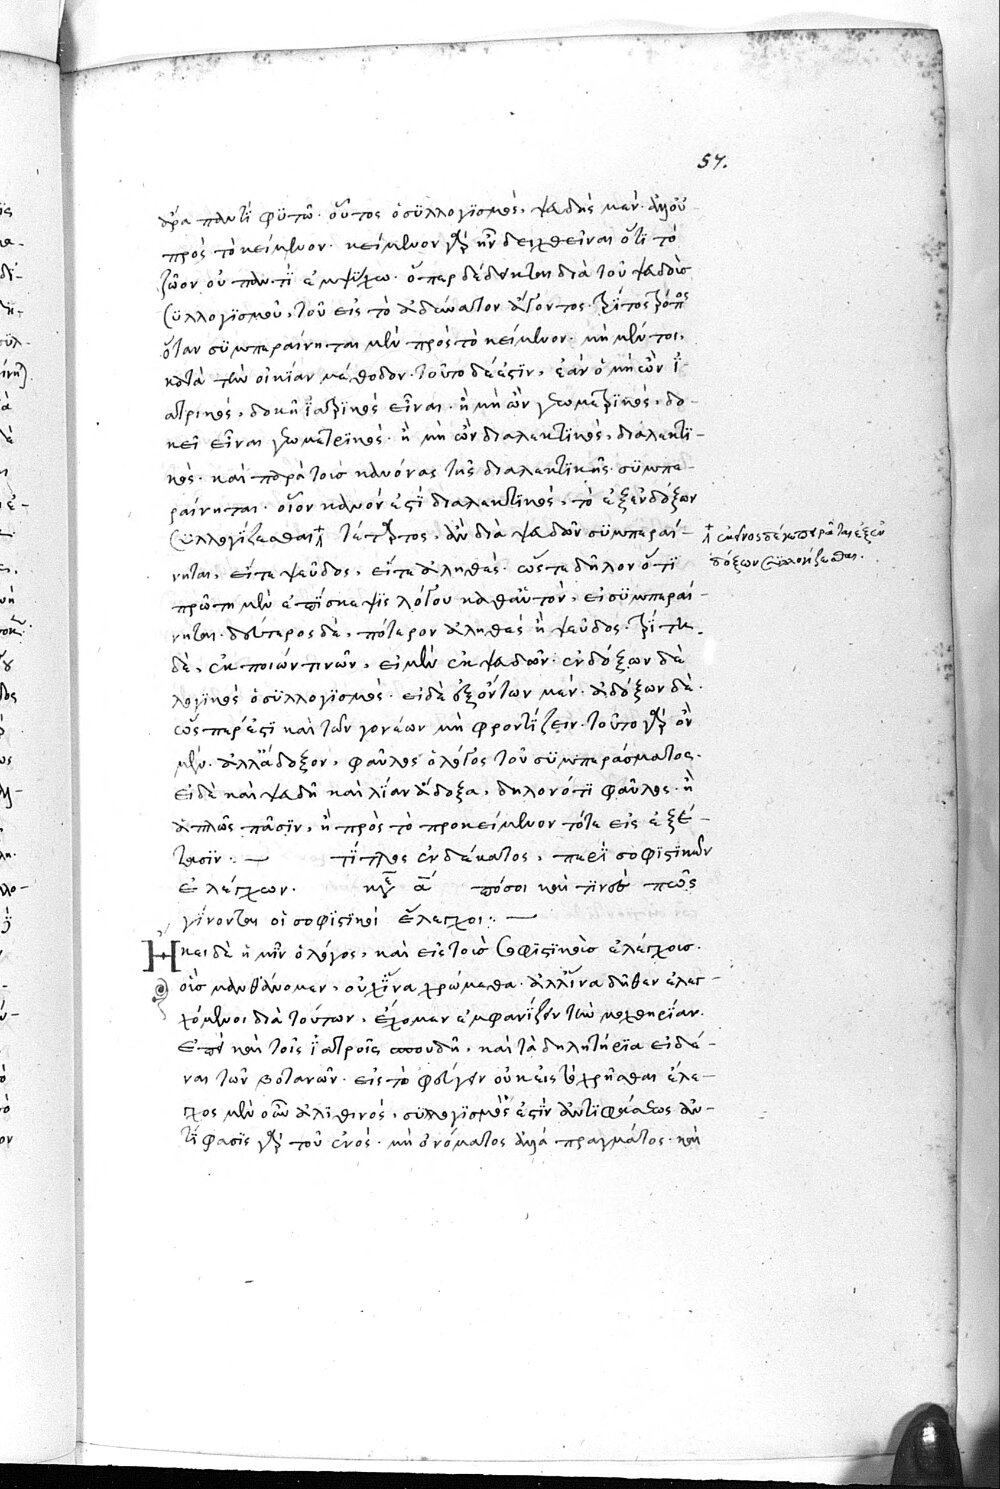 57.
ἄρα παντὶ φϋτῶ· οὗτος ὁ συλλογϊσμὸς, ψευδὴς μὲν· ἀλλ' οὐ
πρὸς τὸ κείμενον· κείμενον γὰρ ἦν δειχθεῖναι ὅτϊ τὸ
ζῶον οὐ παντὶ ἐμψύχω· ὅπερ δέδεικται διὰ τοῦ ψευδοῦς
συλλογϊσμοῦ, τοῦ εἰς τὸ ἀδύνατον ἄγοντος· τρίτος τρόπος
ὅταν συμπεραίνηται μὲν πρὸς τὸ κείμενον· μὴ μέν τοι,
κατὰ τὴν οἰκείαν μέθοδον· τοῦτο δέ ἐστϊν, ἐὰν ὁ μὴ ὢν ἰ-
ατρικὸς, δοκῆ ἰατρϊκὸς εἶναι· ἢ μὴ ὢν γεωμετρϊκὸς, δο-
κεῖ εἶναι γεωμετρϊκὸς· ἢ μὴ ὢν διαλεκτϊκὸς, διαλεκτϊ-
κὸς· καὶ παρὰ τοὺς κανόνας τῆς διαλεκτϊκῆς συμπε-
ραίνηται· οἷον κανών ἐστϊ διαλεκτϊκὸς, τὸ ἐξ ἐνδόξων
συλλογίζεσθαι τέταρτος, ἂν διὰ ψευδῶν συμπεραί-
νηται, εἴτε ψεῦδος, εἴτε ἀληθὲς· ὥστε δῆλον ὅτϊ
πρώτη μὲν ἐπίσκεψϊς λόγου καθ' αὑτὸν, εἰ συμπεραί-
νηται· δεύτερος δὲ, πότερον ἀληθὲς ἢ ψεῦδος· τρίτη
δὲ, ἐκ ποίων τινῶν, εἰ μὲν ἐκ ψευδῶν· ἐνδόξων δὲ
λογϊκὸς ὁ συλλογϊσμὸς· εἰ δὲ ἐξ ὄντων μὲν· ἀδόξων δὲ
ὥσπερ ἐστὶ καὶ τῶν γονέων μὴ φροντίζειν· τοῦτο γὰρ ὂν
μὲν· ἀλλ' ἄδοξον, φαῦλος ὁ λόγος τοῦ συμπεράσματος·
εἰ δὲ καὶ ψευδῆ καὶ λίαν ἄδοξα, δηλονότϊ φαῦλος· ἢ
ἁπλῶς πᾶσϊν, ἢ πρὸς τὸ προκείμενον τότε εἰς ἐξέ-
τασϊν:— τίτλος ἑνδέκατος, περὶ σοφϊστϊκῶν
ἐλέγχων· κεφ αʹ πόσοι καὶ τίνες πῶς
γίνονται οἱ σοφϊστϊκοὶ ἔλεγχοι:—
Ἥκει δὲ ἡμῖν ὁ λόγος, καὶ εἰς τοὺς σοφϊστϊκοὺς ἐλέγχους·
οὓς μανθάνομεν, οὐχ ἵνα χρώμεθα· ἀλλ' ἵνα δῆθεν ἐλεγ-
χόμενοι διὰ τούτων, ἔχομεν ἐμφανίζειν τὴν μοχθηρίαν·
ἐπεὶ καὶ τοῖς ἰατροῖς σπουδὴ, καὶ τὰ δηλητήρϊα εἰδέ-
ναι τῶν βοτανῶν· εἰς τὸ φεύγειν οὐκ εἰς τὸ χρῆσθαι ἔλε-
γχος μὲν οὖν ἀλιθινὸς, συλλογϊσμὸς ἐστὶν ἀντϊφάσεως ἀν-
τίφασϊς γὰρ τοῦ ἑνὸς· μὴ ὀνόματος ἀλλὰ πράγματος· καὶ